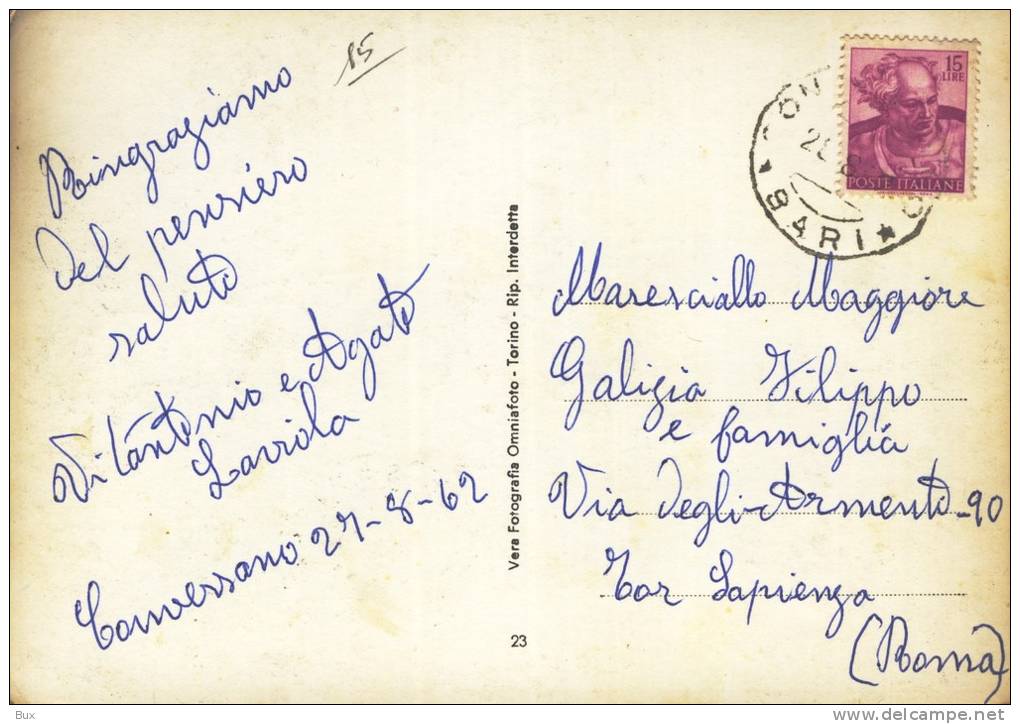 15
Ringraziamo
del pensiero
saluti
Vitantonio e Agati
Laviola
Conversano 27-8-62
Vera Fotografia Omniafoto - Torino - Rip. Interdetta
23
15
LIRE
POSTE ITALIANE
BARI
Maresciallo Maggiore
Galizia Filippo
e famiglia
Via degli Armenti-90
Tor Sapienza
(Roma)
Bux
delcampe.net